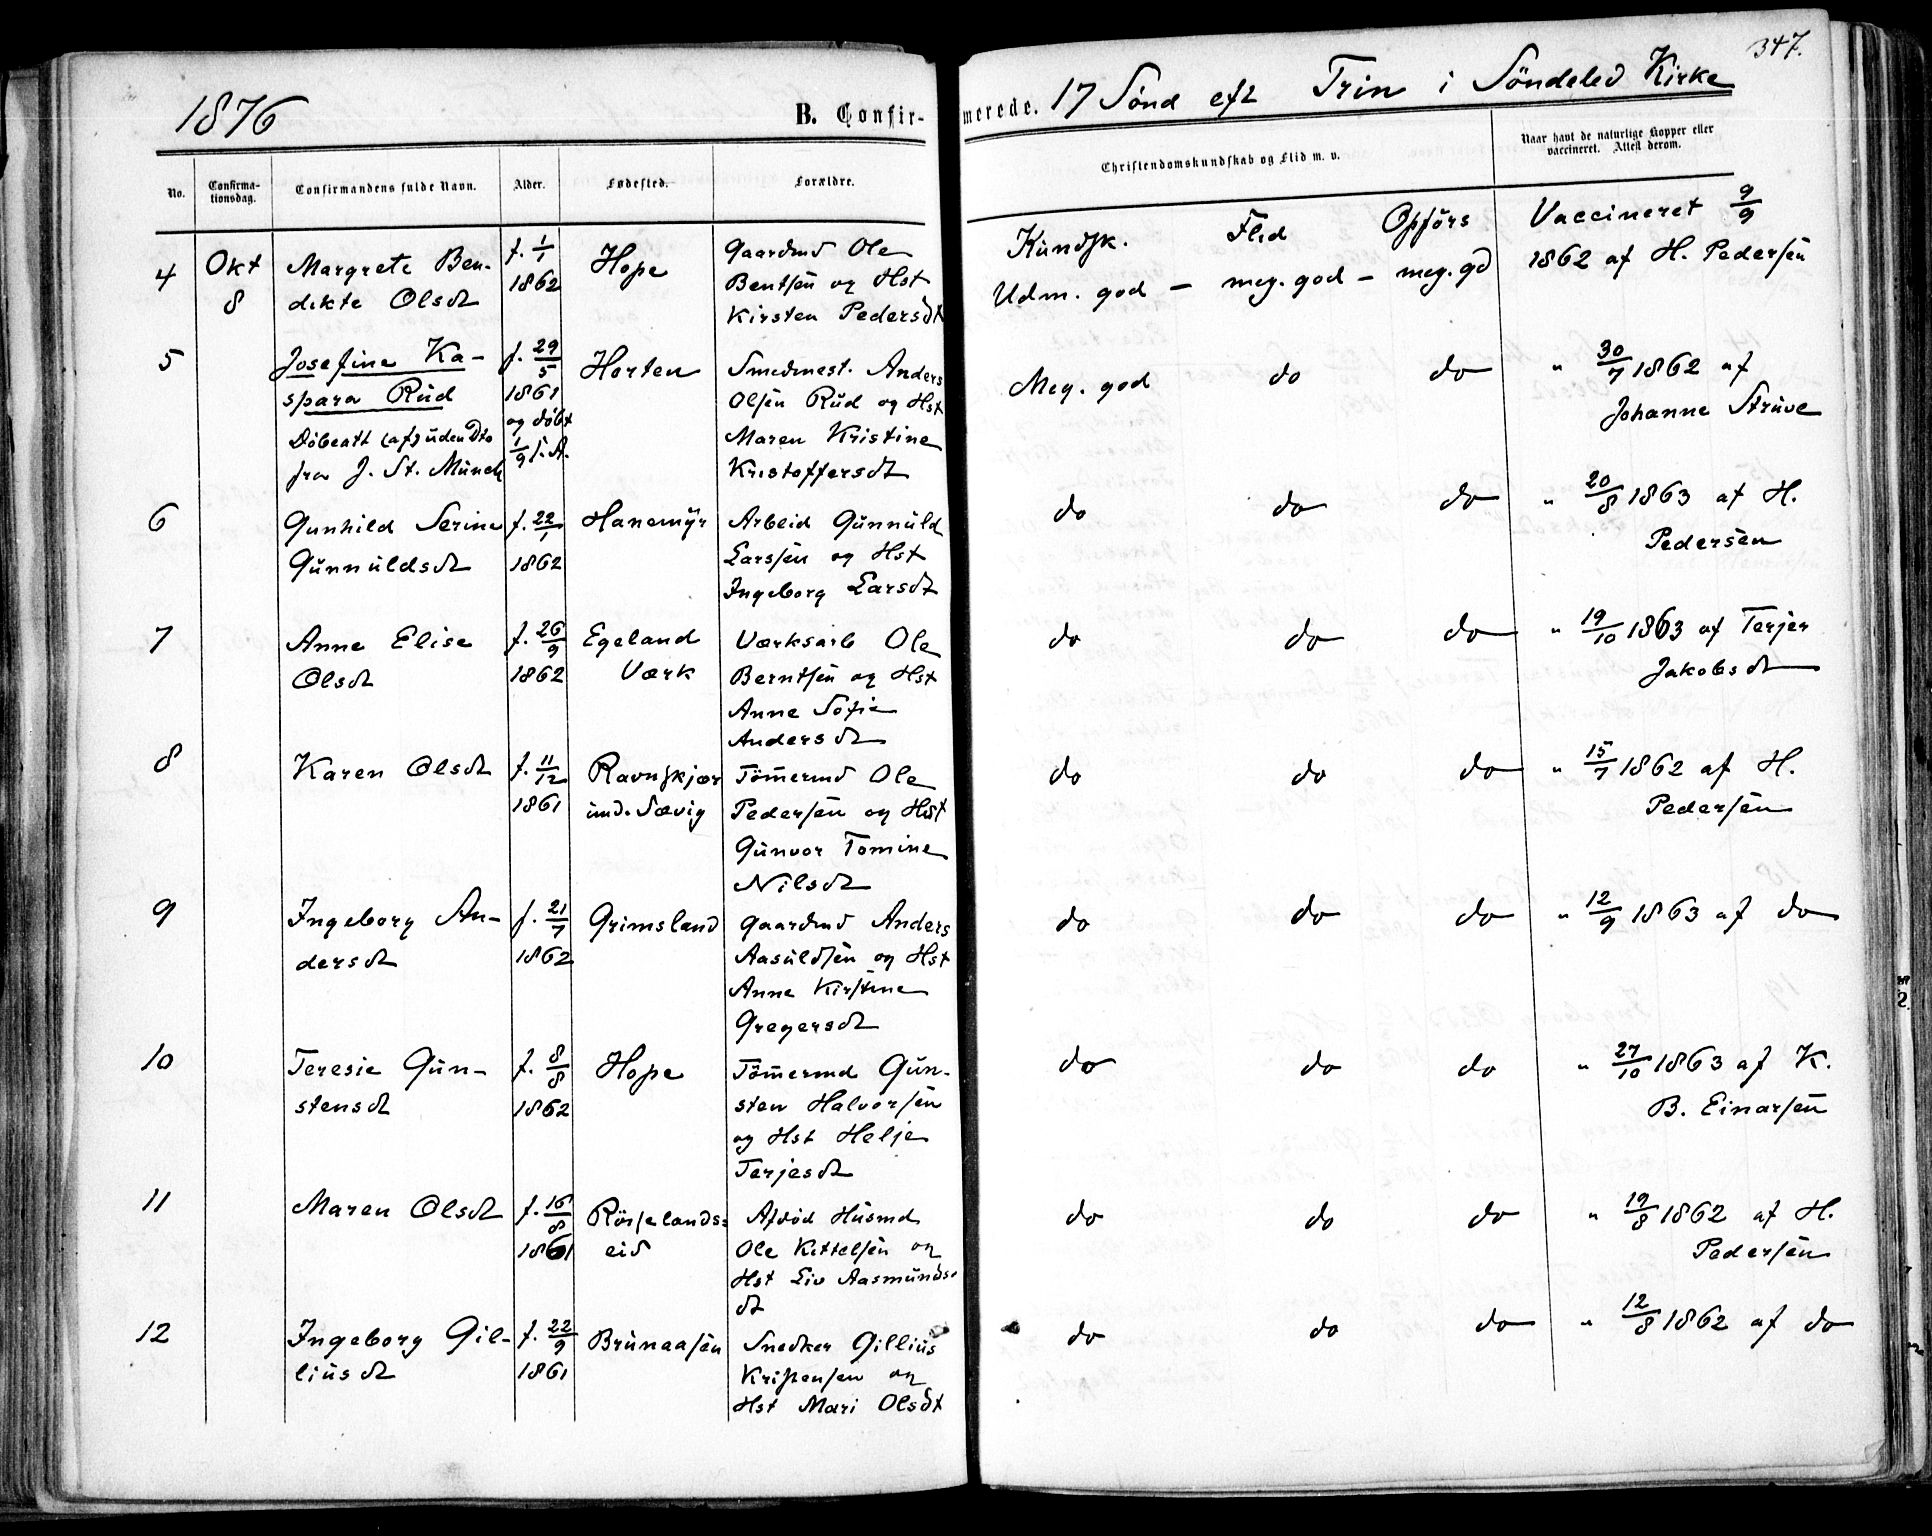 347.
1876 B. Confir-merede. 17 Sönd eft Trin i Söndeled Kirke
No. Confirma-tionsdag. Confirmandens fulde Navn. Alder. Fødested. Forældre. Christendomskundskab og Flid m. v. Naar havt de naturlige Kopper eller vaccineret. Attest derom.
4 Okt Margrete Ben- f. 1/1 Hope Gaardmd Ole Kundsk. Flid Opförs Vaccineret 9/9
8 dikte Olsdt 1862 Bentsen og Hst Udm. god — meg. god — meg. gd 1862 af H. Pedersen
Kirsten Pedersdt
5 Josefine Ka- f. 29/5 Horten Smedmest. Anders Meg. god do do " 30/7 1862 af
spara Rud 1861 Olsen Rud og Hst Johanne Struve
Döbeatt (af) uden Dto og döbt Maren Kristine
fra J. St. Münch 1/9 s. A. Kristoffersdt
6 Gunhild Serine f. 22/1 Hanemyr Arbeid Gunnuld do do do " 20/8 1863 af H.
Gunnuldsdt 1862 Larssen og Hst Pedersen
Ingeborg Larsdt
7 Anne Elise f. 26/9 Egeland Værksarb Ole do do do " 19/10 1863 af Terjer
Olsdt 1862 Værk Berntsen og Hst Jakobsdt
Anne Sofie
Andersdt
8 Karen Olsdt f. 11/12 Ravnskjær Tömermd Ole do do do " 15/7 1862 af H.
1861 und. Sævig Pedersen og Hst Pedersen
Gunvor Tomine
Nilsdt
9 Ingeborg An- f. 21/7 Grimsland Gaardmd Anders do do do " 12/9 1863 af do
dersdt 1862 Aasuldsen og Hst
Anne Kirstine
Gregersdt
10 Teresie Gun- f. 8/8 Hope Tömermd Gun- do do do " 27/10 1863 af K.
stensdt 1862 sten Halvorsen B. Einarsen
og Hst Helje
Terjesdt
11 Maren Olsdt f. 16/8 Rörselands= Afdöd Husmd do do do " 19/8 1862 af H.
1861 eid Ole Kittelsen og Pedersen
Hst Liv Aasmunds-
dt
12 Ingeborg Gil- f. 22/9 Brunaasen Snedker Gillius do do do " 12/8 1862 af do
liusdt 1861 Kristensen og
Hst Mari Olsdt